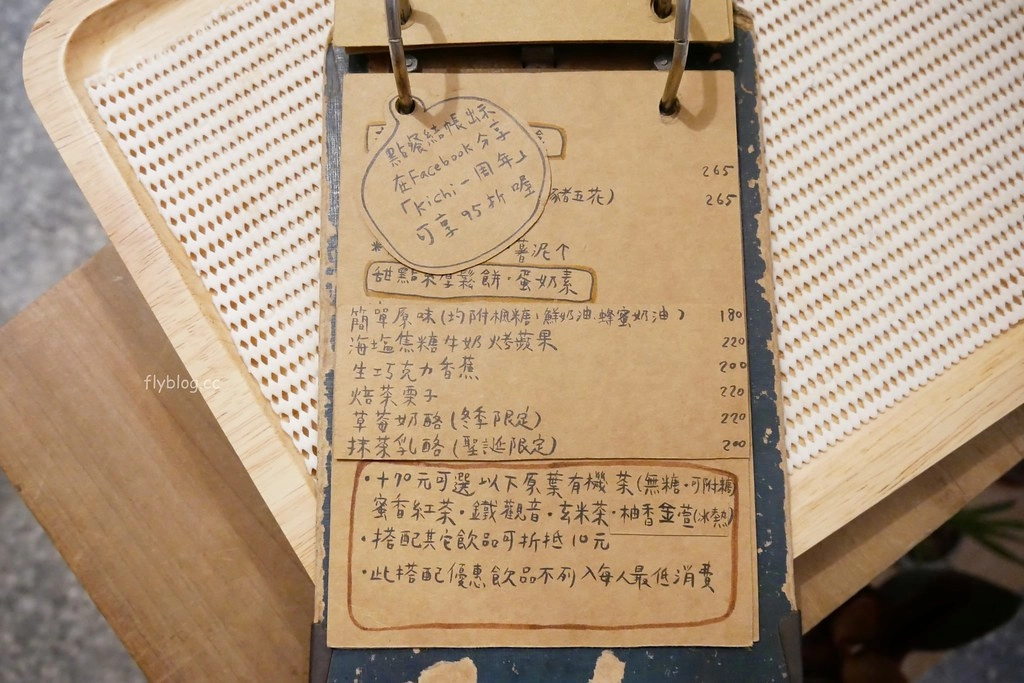 點餐結帳出示
在Facebook分享
「kichi一周年」
可享95折喔
265
豬五花) 265
*
薯泥个
甜點米厚鬆餅·蛋奶素
簡單原味(均附楓糖、鮮奶油.蜂蜜奶油) 180
海塩焦糖牛奶烤蘋果 220
生巧克力香蕉 200
焙茶栗子 220
草莓奶酪(冬季限定) 220
抹茶乳酪(聖誕限定) 200
·+70元可選以下原葉有機茶(無糖·可附糖)
蜜香紅茶·鐵觀音·玄米茶·柚香金萱(冰熱)
·搭配其它飲品可折抵10元
·此搭配優惠飲品不列入每人最低消費
flyblog.cc